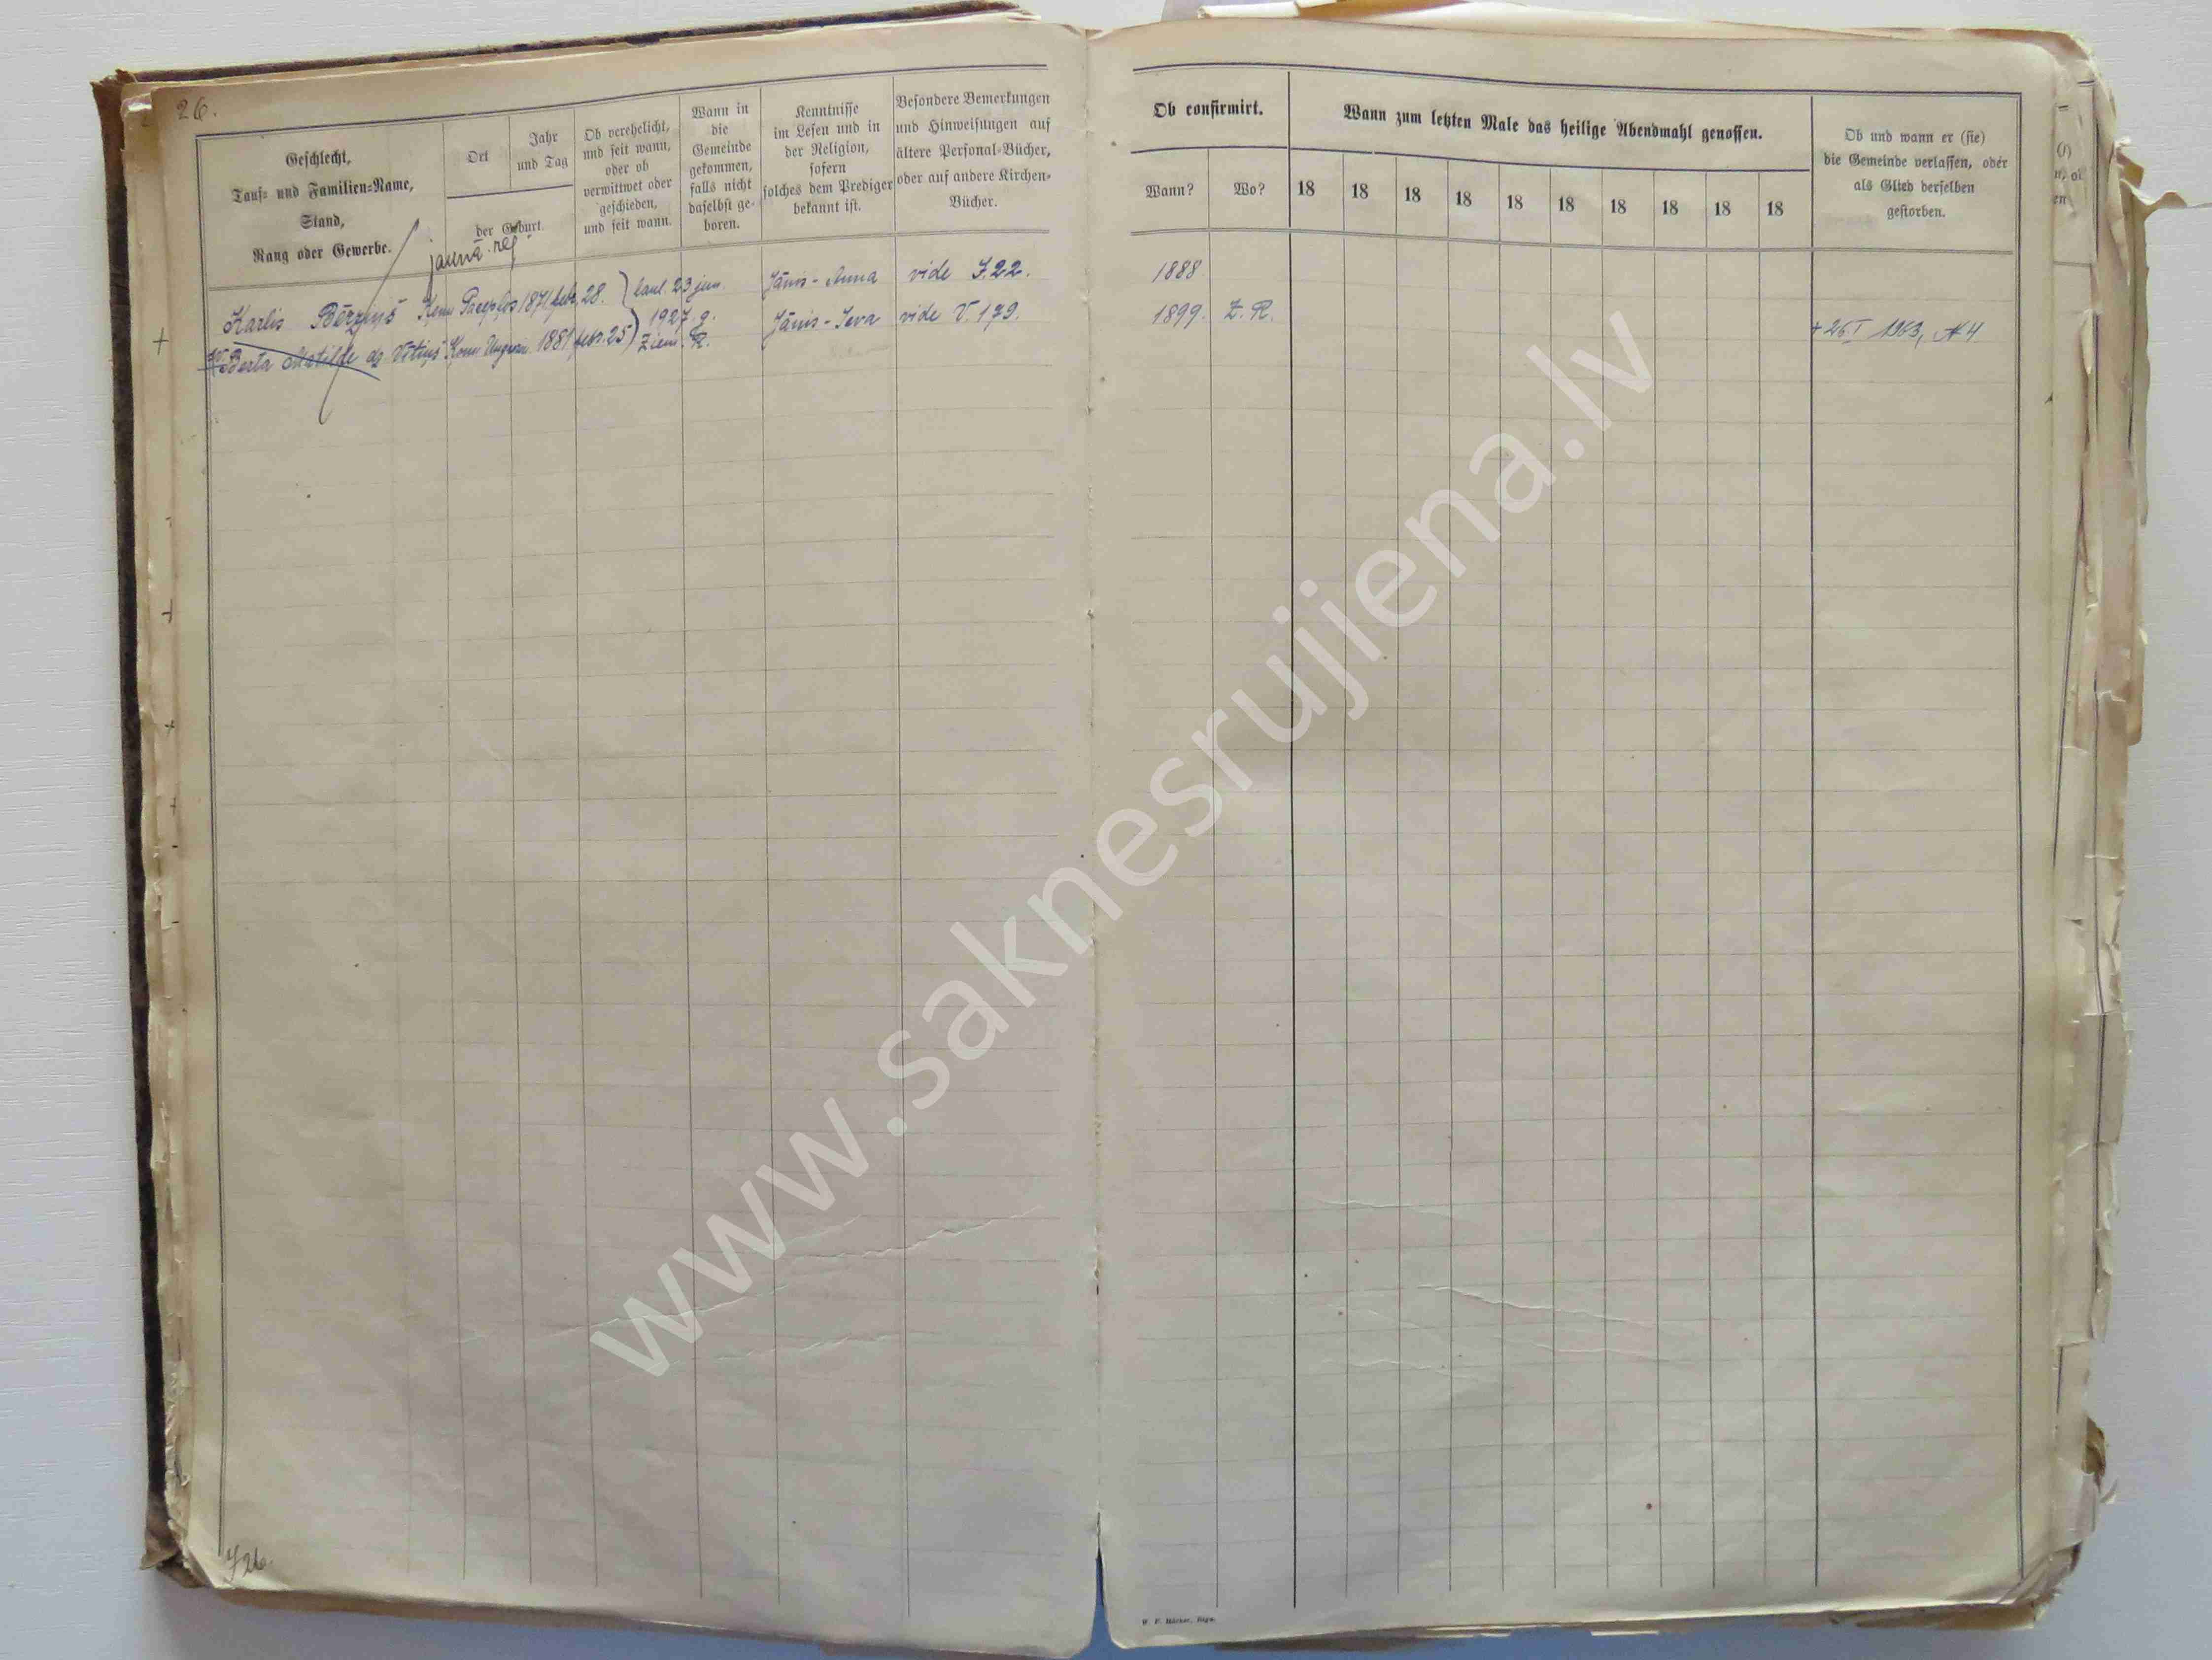 26.
Geschlecht,
Tauf- und Familien-Name,
Stand,
Rang oder Gewerbe.
Ort
Jahr
und Tag
der Geburt.
Ob verehelicht,
und seit wann,
oder ob
verwittwet oder
geschieden,
und seit wann.
Wann in
die
Gemeinde
gekommen,
falls nicht
daselbst ge-
boren.
Kenntnisse
im Lesen und in
der Religion,
sofern
solches dem Prediger
bekannt ist.
Besondere Bemerkungen
und Hinweisungen auf
ältere Personal-Bücher,
oder auf andere Kirchen-
Bücher.
Ob confirmirt.
Wann?
Wo?
Wann zum letzten Male das heilige Abendmahl genossen.
18 18 18 18 18 18 18 18 18 18
Ob und wann er (sie)
die Gemeinde verlassen, oder
als Glied derselben
gestorben.
jaunā reģ
Karlis Bērziņš 1871 febr. 28. laul. 23 jun. Jānis - Anna vide I.22. 1888
1927. g.
Berta Matilde dz. Vītiņš 1881 febr. 25 Ziem. R. Jānis - Ieva vide V 179. 1899. Z. R. + 26 I 1963, № 4
I 26.
www.saknesrujiena.lv